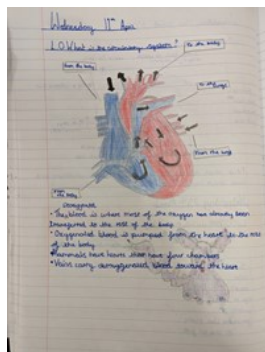 Wednesday 11th Apr
L.O What is the circulatory system?
To the body
From the body
To the lungs
From the lung
From the body
Deoxygenated
• The blood is where most of the oxygen has already been
transferred to the rest of the body
• Oxygenated blood is pumped from the heart to the rest
of the body
• Mammals have hearts that have four chambers
• Veins carry deoxygenated blood toward the heart